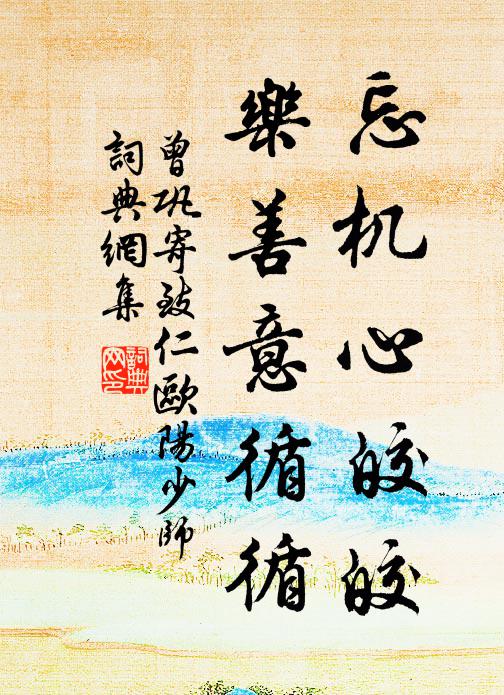 忘机心皎皎
樂善意循循
曾巩寄致仁歐陽少師
詞典網集
詞典
网印